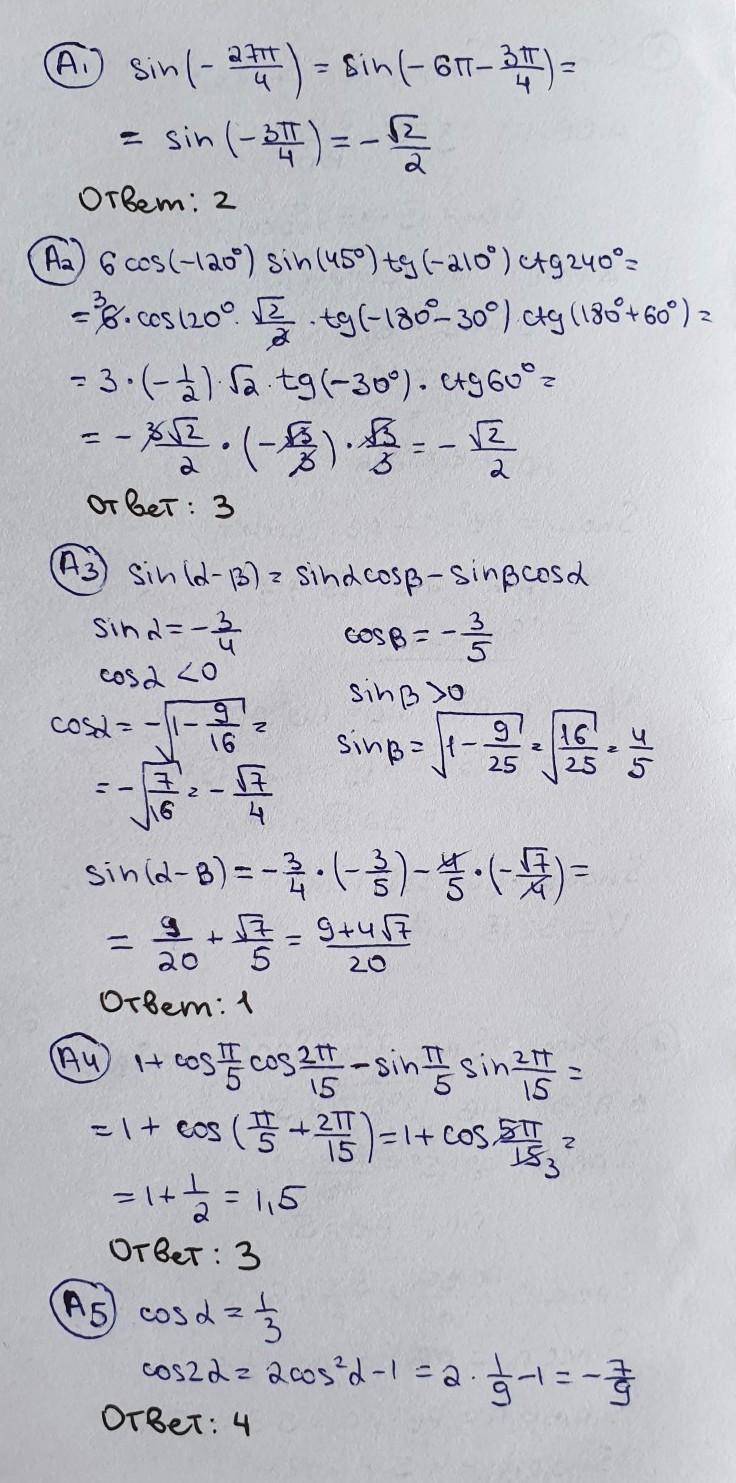 A1 sin(-27π/4) = sin(-6π-3π/4) =
= sin(-3π/4) = -√2/2
Ответ: 2
A2 6 cos(-120°) sin(45°) tg(-210°) ctg240° =
= 3 6 · cos120° · √2/2 · tg(-180°-30°) · ctg(180°+60°) =
= 3 · (-1/2) · √2 · tg(-30°) · ctg60° =
= - 3√2/2 · (-√3/3) · √3/3 = - √2/2
Ответ: 3
A3 sin(α-β) = sinαcosβ - sinβcosα
sinα = -3/4 cosβ = -3/5
cosα < 0 sinβ > 0
cosα = -√(1-9/16) = sinβ = √(1-9/25) = √(16/25) = 4/5
= -√(7/16) = -√7/4
sin(α-β) = -3/4 · (-3/5) - 4/5 · (-√7/4) =
= 9/20 + √7/5 = (9+4√7)/20
Ответ: 1
A4 1 + cos π/5 cos 2π/15 - sin π/5 sin 2π/15 =
= 1 + cos(π/5 + 2π/15) = 1 + cos 5π/15 3 =
= 1 + 1/2 = 1,5
Ответ: 3
A5 cosα = 1/3
cos2α = 2cos²α - 1 = 2 · 1/9 - 1 = -7/9
Ответ: 4